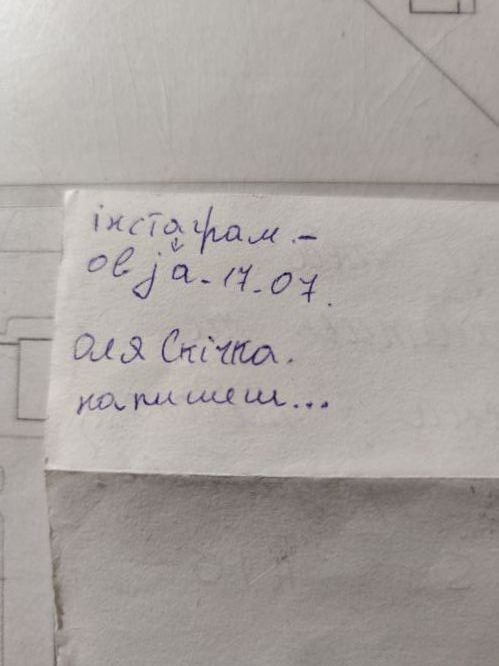 інстаграм.-
ов jа-17-07.
Оля Снічка.
напишеш...